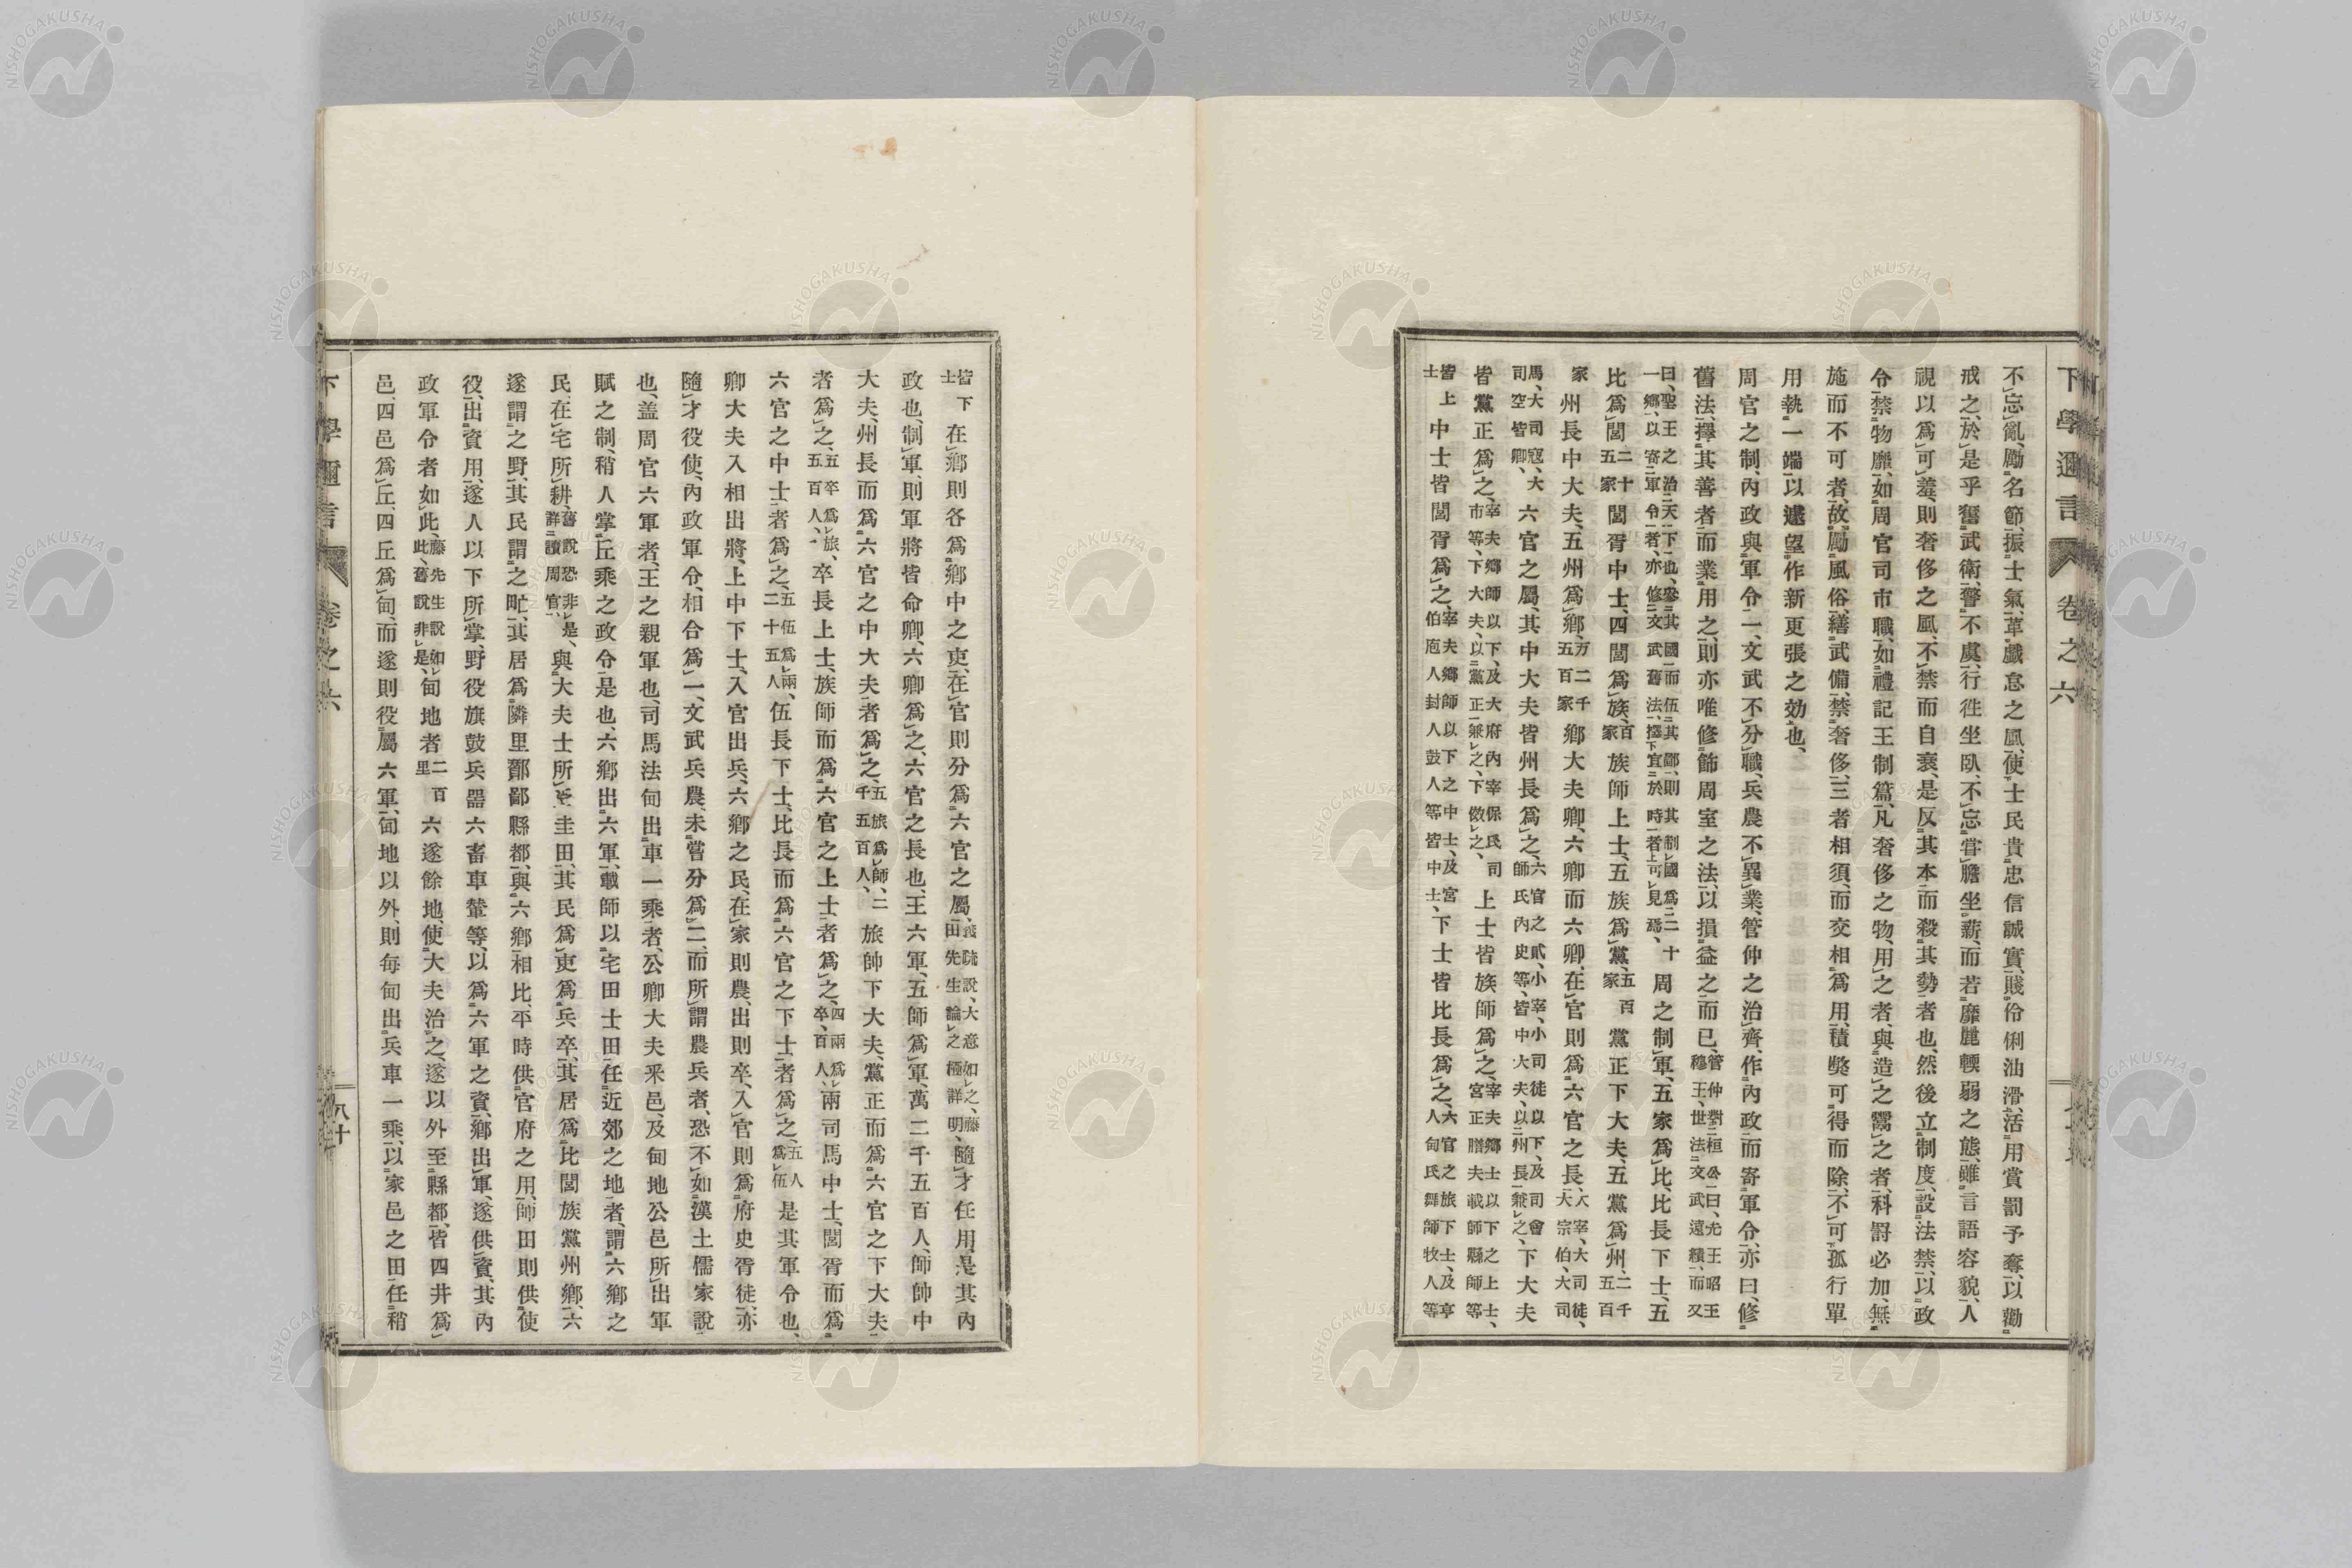 下學邇言 卷之六
不忘亂、勵名節、振士氣、革戲怠之風、使士民貴忠信誠實、賤伶俐油滑、活用賞罰予奪、以勸
戒之、於是乎奮武衛、警不虞、行往坐臥、不忘嘗膽坐薪、而若靡麗輭弱之態、雖言語容貌、人
視以爲可羞、則奢侈之風、不禁而自衰、是反其本而殺其勢者也、然後立制度、設法禁、以政
令禁物靡、如周官司市職、如禮記王制篇、凡奢侈之物、用之者、與造之鬻之者、科罸必加、無
施而不可者、故厲風俗、繕武備、禁奢侈、三者相須、而交相爲用、積弊可得而除、不可孤行單
用執一端、以遽望作新更張之効也、
周官之制、內政與軍令一、文武不分職、兵農不異業、管仲之治齊、作內政而寄軍令、亦曰、修
舊法、擇其善者而業用之、則亦唯修飾周室之法、以損益之而已、管仲對桓公曰、先王昭王穆王、世法文武遠績、而又
曰、聖王之治天下也、參其國而伍其鄙、則其制國爲二十一鄉、以寄軍令者、亦修文武舊法、擇宜於時者可見焉、周之制軍、五家爲比、比長下士、五
比爲閭二十五家閭胥中士、四閭爲族、百家族師上士、五族爲黨、五百家黨正下大夫、五黨爲州、二千五百
家州長中大夫、五州爲鄉、万二千五百家鄉大夫卿、六卿而六卿、在官則爲六官之長、大宰、大司徒、大宗伯、大司
馬、大司寇、大司空皆卿、六官之屬、其中大夫皆州長爲之、六官之貳、小宰、小司徒以下、及司會師氏內史等、皆中大夫、以州長兼之、下大夫
皆黨正爲之、宰夫鄉師以下、及大府內宰保民司市等、下大夫、以黨正兼之、下傚之、上士皆族師爲之、宰夫鄉士以下之上士、宮正膳夫載師縣師等、
皆上士中士皆閭胥爲之、宰夫鄉師以下之中士、及宮伯庖人封人鼓人等皆中士、下士皆比長爲之、六官之旅下士、及亨人甸氏舞師牧人等
皆下士在鄉則各爲鄉中之吏、在官則分爲六官之屬、義疏說、大意如之、藤田先生論之極詳明、隨才任用、是其內
政也、制軍、則軍將皆命卿、六卿爲之、六官之長也、王六軍、五師爲軍、萬二千五百人、師帥中
大夫、州長而爲六官之中大夫者爲之、五旅爲師、二千五百人、旅帥下大夫、黨正而爲六官之下大夫
者爲之、五卒爲旅、五百人、卒長上士、族師而爲六官之上士者爲之、四兩爲卒、百人、兩司馬中士、閭胥而爲
六官之中士者爲之、五伍爲兩、二十五人、伍長下士、比長而爲六官之下士者爲之、五人爲伍是其軍令也、
卿大夫入相出將、上中下士、入官出兵、六鄉之民、在家則農、出則卒、入官則爲府史胥徒、亦
隨才役使、內政軍令、相合爲一、文武兵農、未嘗分爲二、而所謂農兵者、恐不如漢土儒家說
也、蓋周官六軍者、王之親軍也、司馬法甸出車一乘者、公卿大夫釆邑、及甸地公邑所出軍
賦之制、稍人掌丘乘之政令是也、六鄉出六軍、載師以宅田士田任近郊之地者、謂六鄉之
民、在宅所耕、舊說恐非是、詳讀周官、與大夫士所受圭田、其民爲吏爲兵卒、其居爲比閭族黨州鄉、六
遂謂之野、其民謂之甿、其居爲隣里酇鄙縣都、與六鄉相比、平時供官府之用、師田則供使
役、出資用、遂人以下所掌、野役旗鼓兵器六畜車輦等、以爲六軍之資、鄉出軍、遂供資、其內
政軍令者如此、藤先生說如此、舊說非是、甸地者二百里六遂餘地、使大夫治之、遂以外至縣都、皆四井爲
邑、四邑爲丘、四丘爲甸、而遂則役屬六軍、甸地以外、則每甸出兵車一乘、以家邑之田任稍
下學邇言 卷之六 八十